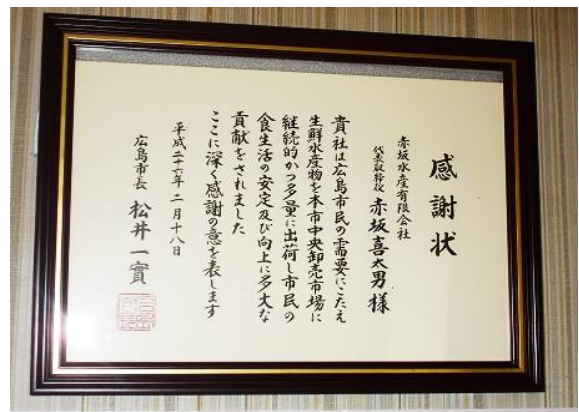 感謝状
赤坂水産有限会社
代表取締役 赤坂喜太男様
貴社は広島市民の需要にこたえ
生鮮水産物を本市中央卸売市場に
継続的かつ多量に出荷し市民の
食生活の安定及び向上に多大な
貢献をされました
ここに深く感謝の意を表します
平成二十六年二月十八日
広島市長 松井一實